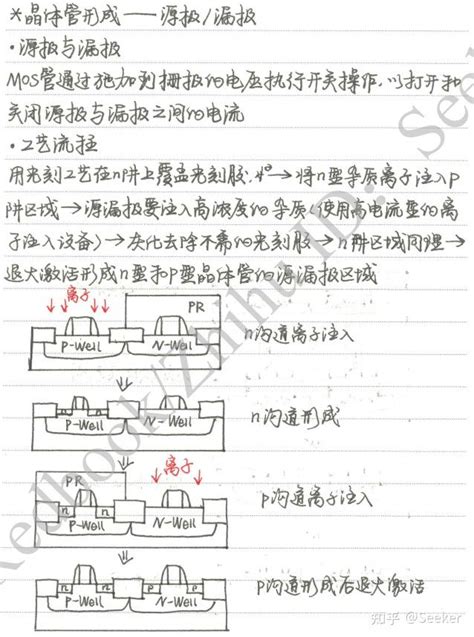 *晶体管形成——源极/漏极
·源极与漏极
MOS管通过施加到栅极的电压执行开关操作,以打开和
关闭源极与漏极之间的电流
·工艺流程
用光刻工艺在n阱上覆盖光刻胶,→将n型杂质离子注入P
阱区域→源漏极要注入高浓度的杂质(使用高电流型的离
子注入设备)→灰化去除不需的光刻胶→n阱区域同理→
退火激活形成n型和P型晶体管的源漏极区域
离子
PR
P-Well N-Well
n沟道离子注入
P-Well N-Well
n沟道形成
PR
离子
n n
P-Well N-Well
p沟道离子注入
n n p p
P-Well N-Well
p沟道形成后退火激活
Redbook/Zhihu ID: See
知乎 @Seeker